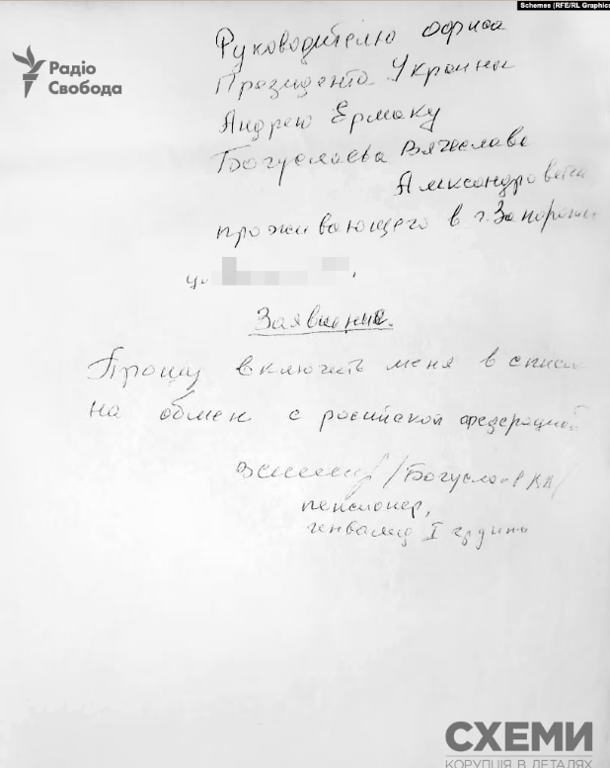 Schemes (RFE/RL Graphics
Радіо
Свобода
Руководителю офиса
Президента Украины
Андрею Ермаку
Богуслаева Вячеслава
Александровича
проживающего в г. Запорожье
ул
Заявление.
Прошу включить меня в список
на обмен с російской федерацией
пенсионер,
инвалид I группы
СХЕМИ
КОРУПЦІЯ В ДЕТАЛЯХ